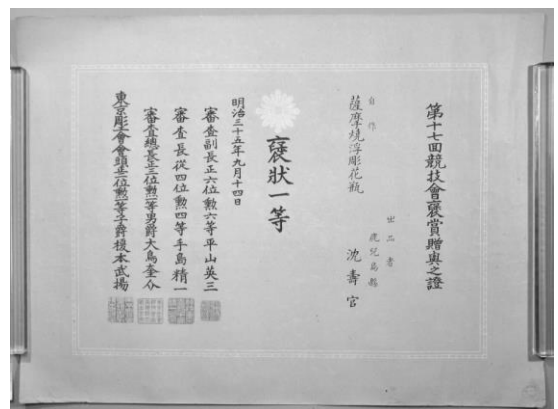 第十七回競技會褒賞贈與之證
出品者
鹿兒島縣
沈壽官
自作
薩摩燒浮彫花瓶
褒狀一等
明治三十五年九月十四日
審査副長正六位勲六等平山英三
審査長從四位勲四等手島精一
審査總長正三位勲一等男爵大鳥圭介
東京彫工會會頭正二位勲一等子爵榎本武揚